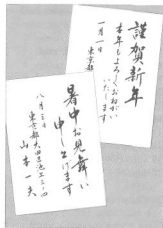 謹賀新年
本年もよろしくおねがい
いたします
一月一日
東京都
暑中お見舞い
申し上げます
八月三日
東京都大田区池上二ノ四
山本一夫